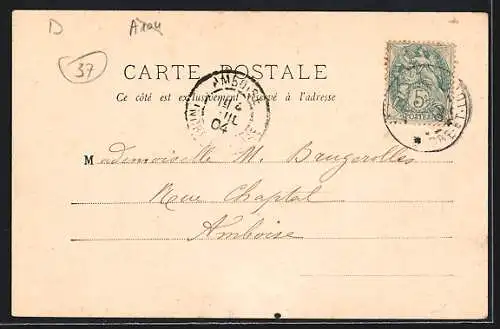 D
37
CARTE POSTALE
Ce côté est exclusivement réservé à l'adresse
AMBOISE
04
5
POSTES
Mademoiselle M. Brugerolles
Rue Chaptal
Amboise